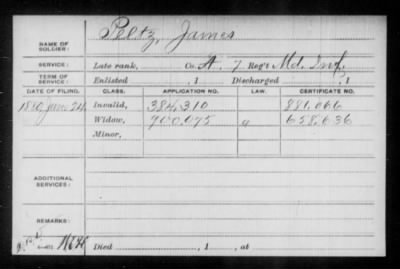 NAME OF SOLDIER: Peltz, James
SERVICE: Late rank, Co. A, 7 Reg't Md. Inf.
TERM OF SERVICE: Enlisted , 1 Discharged , 1
DATE OF FILING. CLASS. APPLICATION NO. LAW. CERTIFICATE NO.
1880 June 24 Invalid, 384,310 881,066
Widow, 900,075 a 658,636
Minor,
ADDITIONAL SERVICES:
REMARKS:
Died , 1 , at